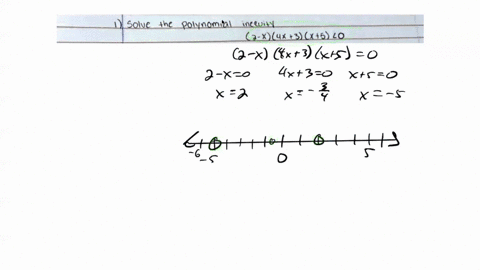 1) Solve the polynomial inequity
(2-x)(4x+3)(x+5)<0
(2-x)(4x+3)(x+5)=0
2-x=0 4x+3=0 x+5=0
x=2 x=-3/4 x=-5
-6 -5 0 5